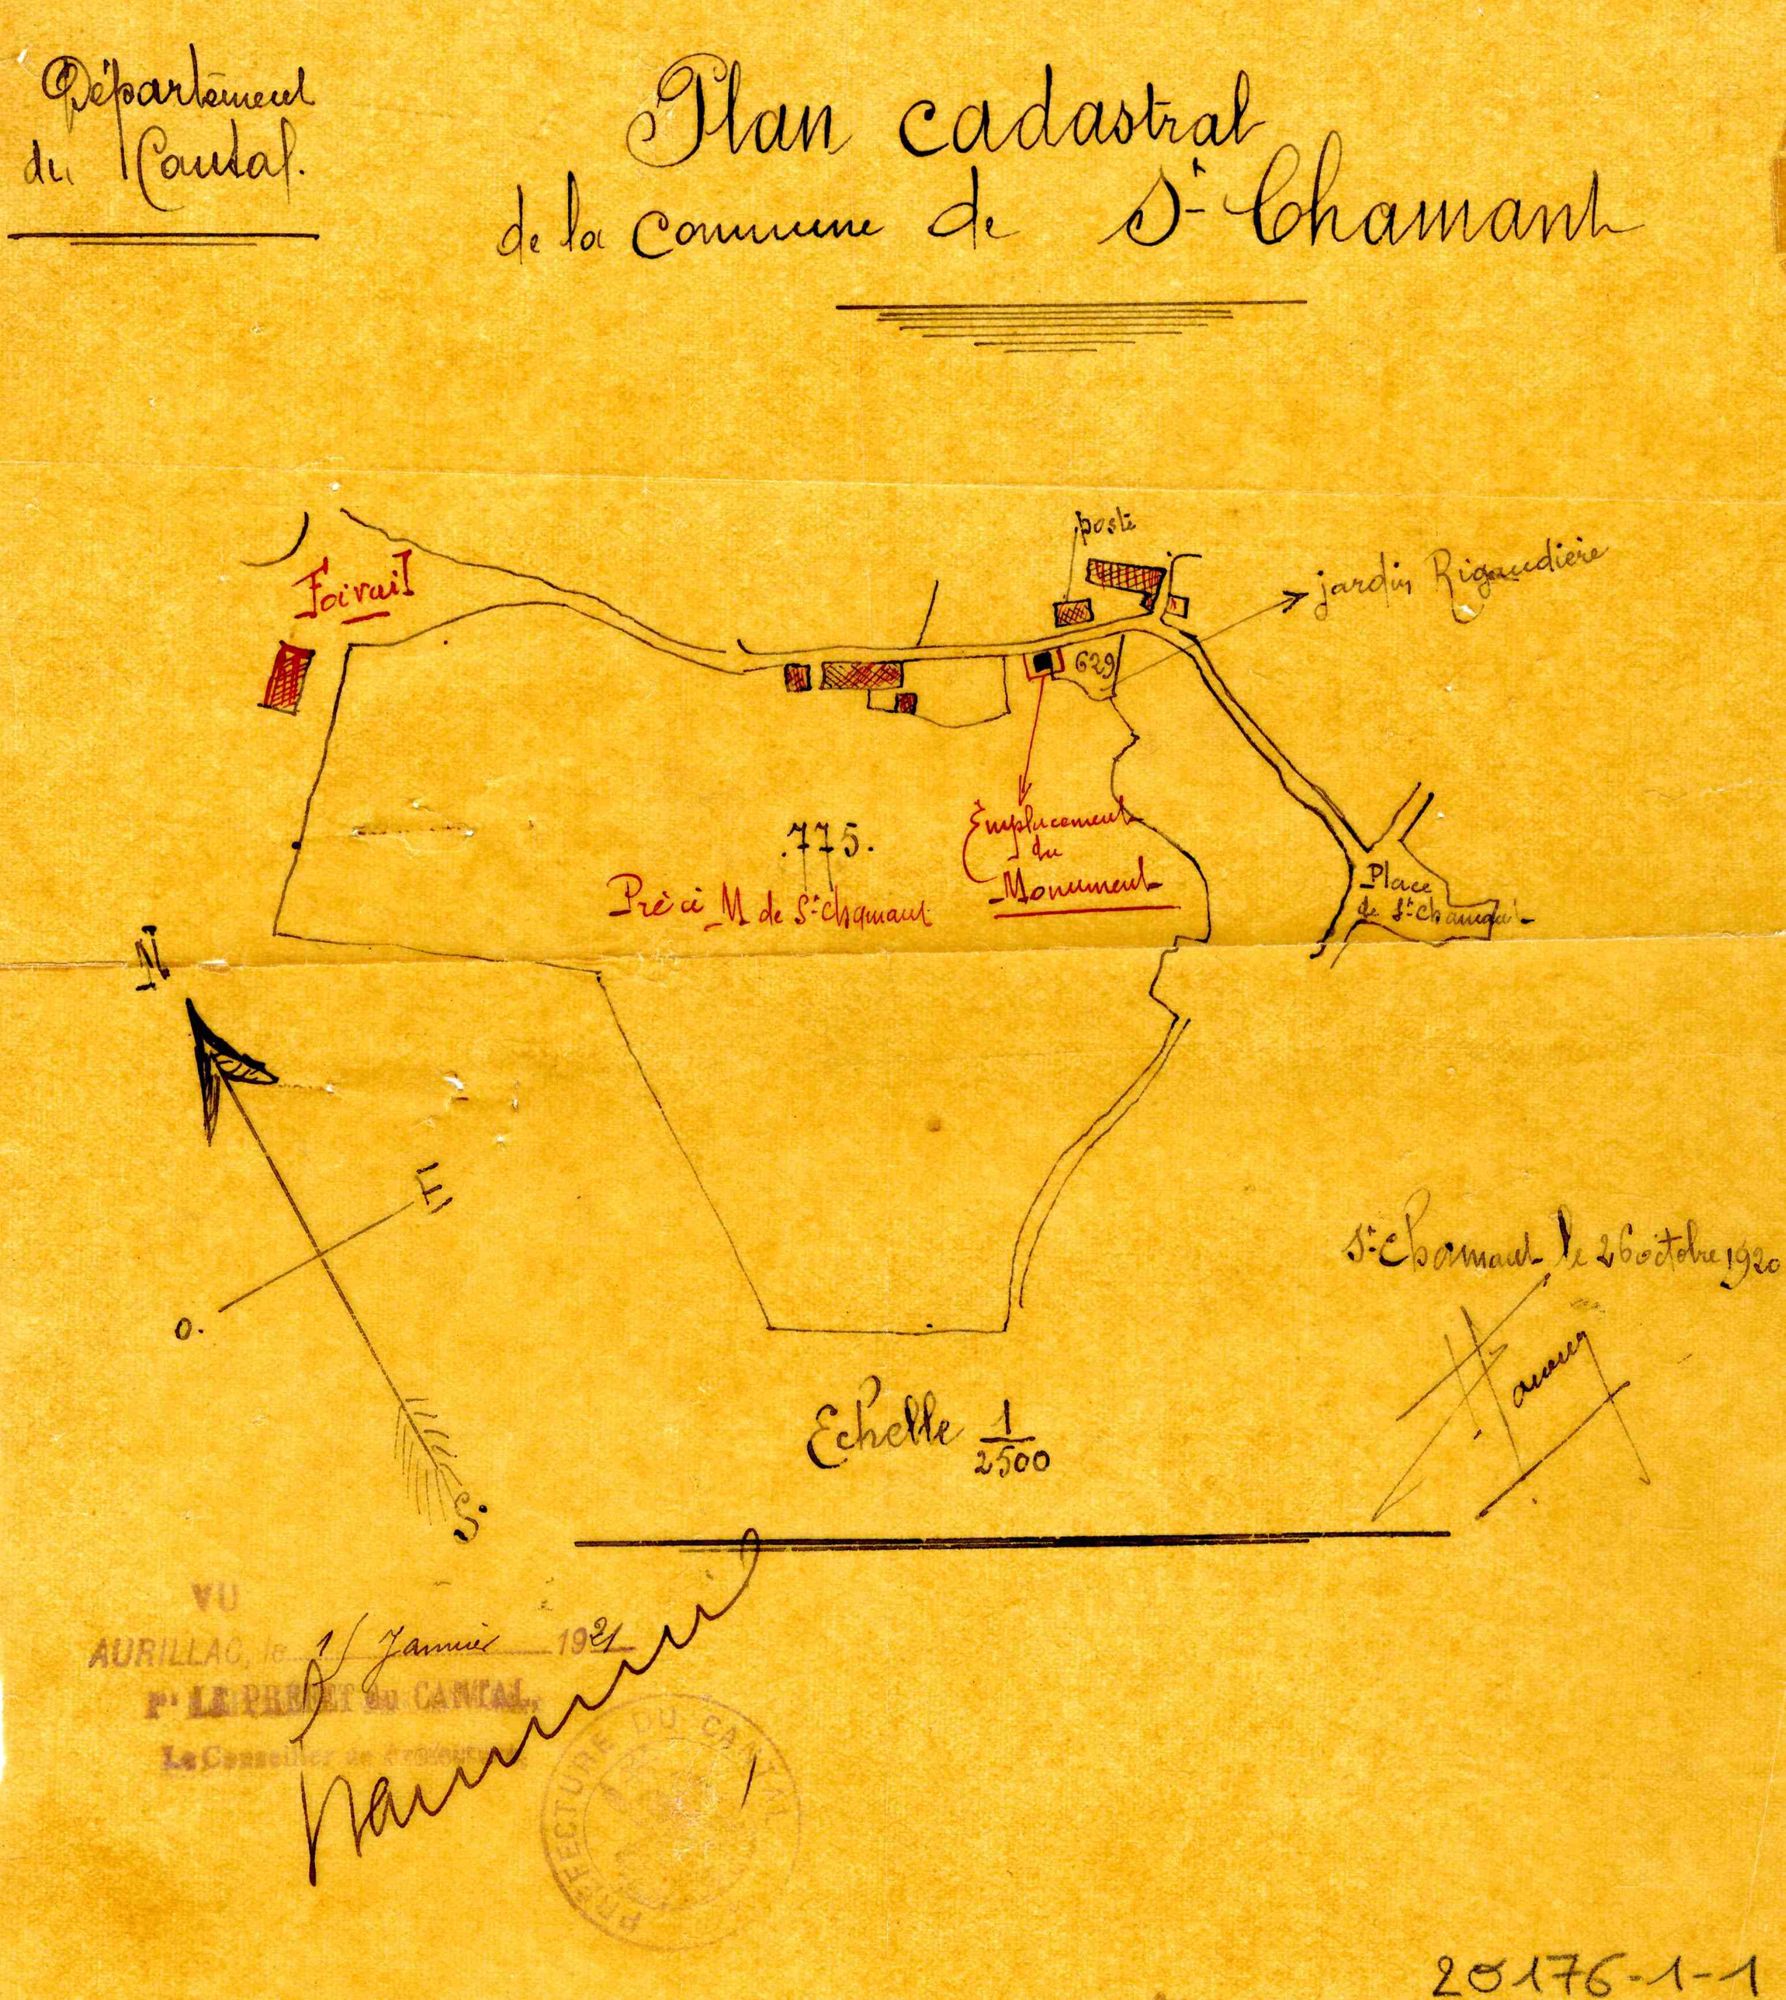 Département
du Cantal.
Plan cadastral
de la commune de St Chamant
poste
jardin Rigaudière
Foirail
629
.775.
Emplacement
du
Monument
Pré à M de St Chamant
Place
de St Chamant
N
E
O.
S.
St Chamant le 26 octobre 1920
Echelle 1/2500
VU
AURILLAC, le 15 Janvier 1921
Pr LE PREFET du CANTAL,
Le Conseiller de Préfecture,
PREFECTURE DU CANTAL
20176-1-1